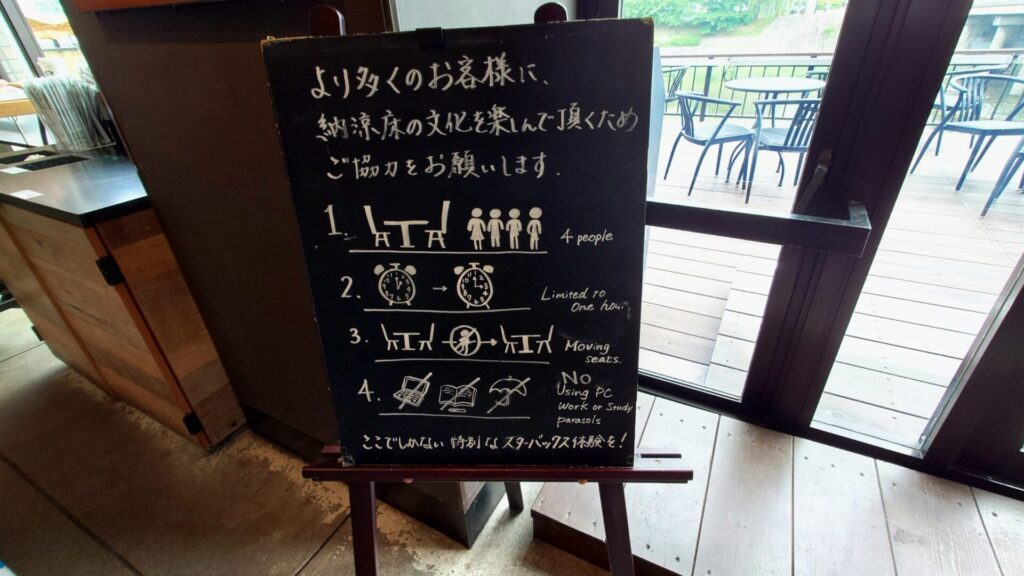 より多くのお客様に、
納涼床の文化を楽しんで頂くため
ご協力をお願いします.
1. 4 people
2. → Limited to
One hou
3. Moving
seats.
4. No
Using PC
Work or Study
parasols
ここでしかない 特別な スターバックス体験を!